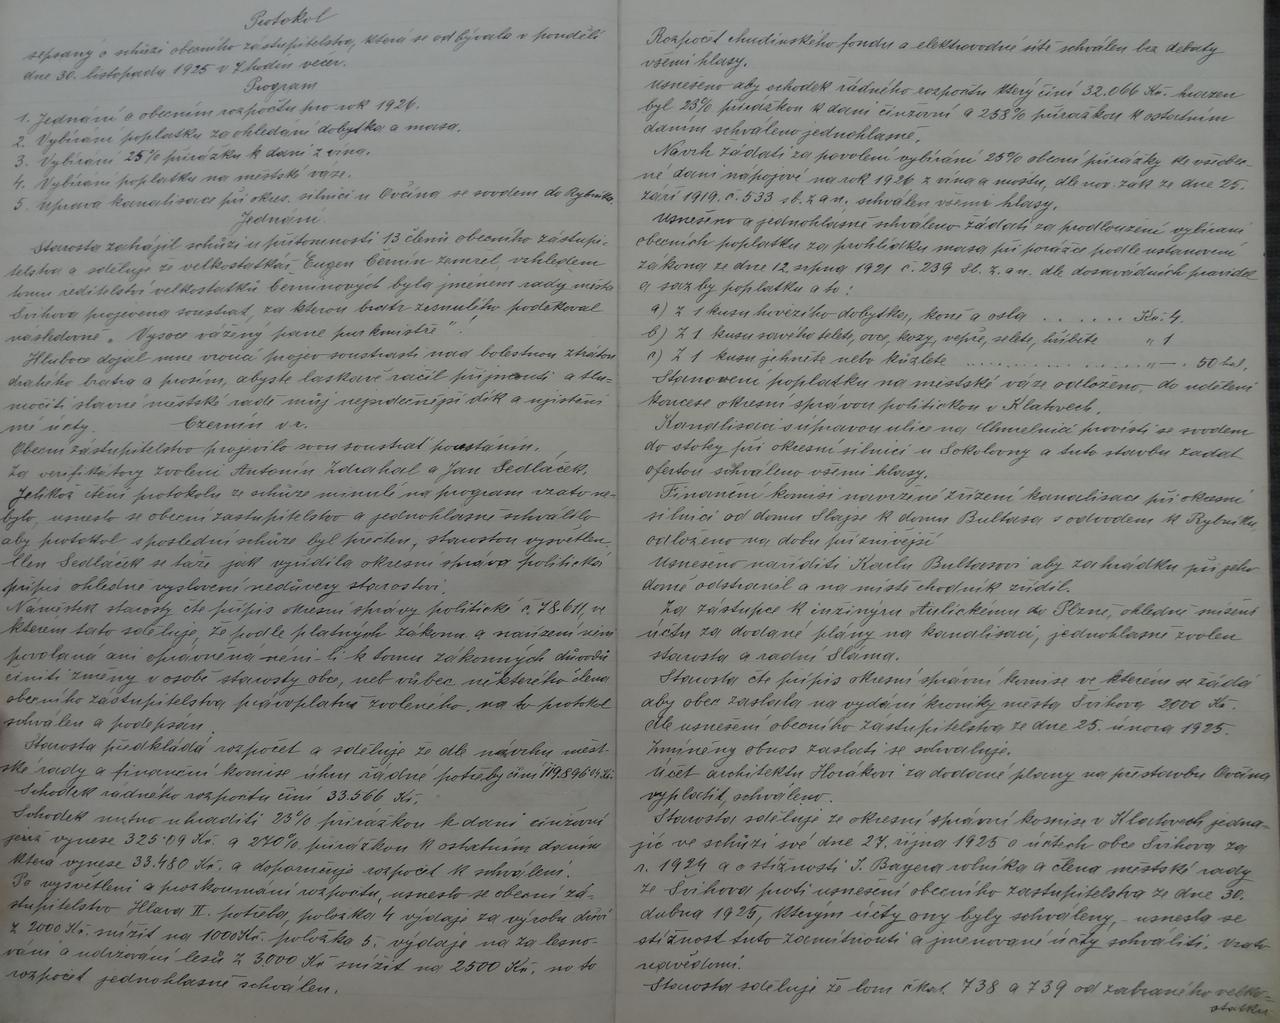 Protokol
sepsaný o schůzi obecního zástupitelstva, která se odbývala v pondělí
dne 30. listopadu 1925 v 7 hodin večer.
Program
1. Jednání o obecním rozpočtu pro rok 1926.
2. Vybírání poplatku za ohledání dobytka a masa.
3. Vybírání 25% přirážku k dani z vína.
4. Vybírání poplatku na městské váze.
5. Úprava kanalisace při okres. silnici u Ovčína se svodem do Rybníka.
Jednání.
Starosta zahájil schůzi u přítomnosti 13 členů obecního zástupi-
telstva a sděluje že velkostatkář Eugen Černín zemřel, vzhledem
tomu ředitelství velkostatků Černínových byla jménem rady města
Švihova projevena soustrast, za kterou bratr zesnulého poděkoval
následovně „Vysoce vážený pane purkmistře"!
Hluboce dojal mne vroucí projev soustrasti nad bolestnou ztrátou
drahého bratra a prosím, abyste laskavě ráčil přijmouti a tlu-
močiti slavné městské radě můj nejsrdečnější dík a ujištění
mé úcty. Czernín v.r.
Obecní zástupitelstvo projevilo svou soustrast povstáním.
Za verifikátory zvoleni Antonín Zdrahal a Jan Sedláček.
Jelikož čtení protokolu ze schůze minulé na program vzato ne-
bylo, usneslo se obecní zastupitelstvo a jednohlasně schválilo
aby protokol s poslední schůze byl přečten, starostou vysvětlen.
Člen Sedláček se táže jak vyřídila okresní správa politická
přípis ohledně vyslovení nedůvěry starostovi.
Náměstek starosty čte přípis okresní správy politické č. 78.611, ve
kterém tato sděluje, že podle platných zákonů a nařízení není
povolaná ani oprávněná není-li k tomu zákonných důvodů
činiti změny v osobě starosty obce, neb vůbec některého člena
obecního zástupitelstva právoplatně zvoleného, na to protokol
schválen a podepsán.
Starosta předkládá rozpočet a sděluje že dle návrhu měst-
ské rady a finanční komise úhrn řádné potřeby činí 119.896.04 Kč.
Schodek řádného rozpočtu činí 33.566 Kč.
Schodek nutno uhraditi 23% přirážkou k dani činžovní
jenž vynese 325.09 Kč. a 240% přirážkou k ostatním daním
která vynese 33.480 Kč. a doporučuje rozpočet k schválení.
Po vysvětlení a prozkoumání rozpočtu, usneslo se obecní zá-
stupitelstvo Hlava II. potřeba, položka 4 výdaje za výrobu dříví
z 2000 Kč. snížit na 1000 Kč. položka 5. výdaje na zalesno-
vání a udržování lesů z 3.000 Kč snížit na 2500 Kč. na to
rozpočet jednohlasně schválen.
Rozpočet chudinského fondu a elektrovodné sítě schválen bez debaty
všemi hlasy.
Usneseno aby schodek řádného rozpočtu který činí 32.066 Kč. hrazen
byl 23% přirážkou k dani činžovní a 238% přirážkou k ostatním
daním schváleno jednohlasně.
Návrh žádati za povolení vybírání 25% obecní přirážky ke všeobec-
né dani nápojové na rok 1926 z vína a moštu, dle nov. zák ze dne 25.
září 1919. č. 533 sb. z a n. schválen všemi hlasy.
Usneseno a jednohlasně schváleno žádati za prodloužení vybírání
obecních poplatku za prohlídku masa při porážce podle ustanovení
zákona ze dne 12. srpna 1921 č. 239 Sb. z. a n. dle dosavadních pravidel
a sazby poplatku a to:
a) Z 1 kusu hovězího dobytka, koně a osla . . . . . . Kč 4.
b) Z 1 kusu savého telete, ovce, kozy, vepře, selete, hříběte „ 1
c) Z 1 kusu jehněte nebo kůzlete . . . . . . . . . . . „ — . 50 hal.
Stanovení poplatku na městské váze odloženo, do udělení
koncese okresní správou politickou v Klatovech.
Kanalisaci s úpravou ulice na Chmelnici provésti se svodem
do stoky při okresní silnici u Sokolovny a tuto stavbu zadat
ofertou schváleno všemi hlasy.
Finanční komisí navržené zřízení kanalisace při okresní
silnici od domu Slajse k domu Bultasa s odvodem k Rybníku,
odloženo na dobu příznivější
Usneseno naříditi Karlu Bultasovi aby zahrádku při jeho
domě odstranil a na místě chodník zřídil.
Za zástupce k inženýru Aulickému do Plzně, ohledně snížení
účtu za dodané plány na kanalisaci, jednohlasně zvolen
starosta a radní Sláma.
Starosta čte přípis okresní správní komise ve kterém se žádá
aby obec zaslala na vydání kroniky města Švihova 2000 Kč.
dle usnešení obecního zástupitelstva ze dne 25. února 1925.
Zmíněný obnos zaslati se schvaluje.
Účet architektu Horákovi za dodané plany na přístavbu Ovčína
vyplatit, schváleno.
Starosta sděluje že okresní správní komise v Klatovech jedna-
jíc ve schůzi své dne 27. října 1925 o účtech obce Švihova za
r. 1924 a o stížnosti J. Bayera rolníka a člena městské rady
ze Švihova proti usnešení obecního zastupitelstva ze dne 30.
dubna 1925, kterým účty ony byly schváleny, – usnesla se
stížnost tuto zamítnouti a jmenované účty schváliti. Vzato
na vědomí.
Starosta sděluje že lom č kat. 738 a 739 od zabraného velko-
statku